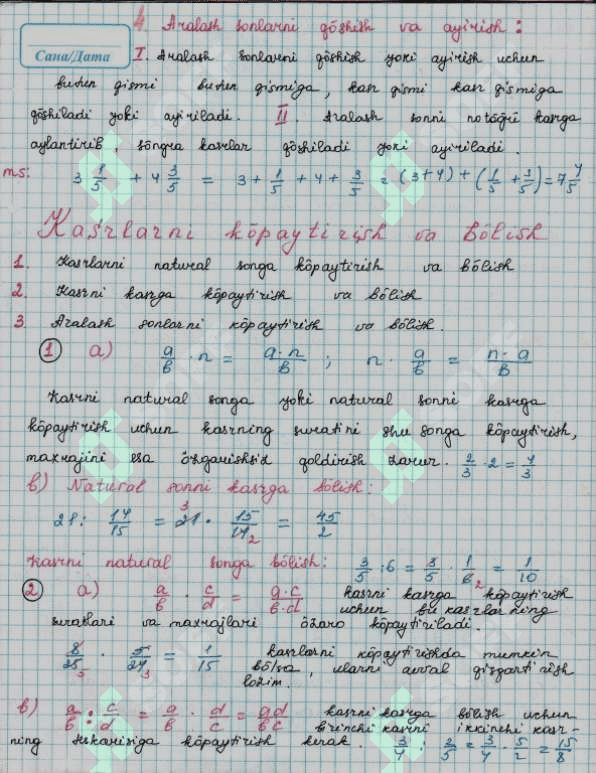 4. Aralash sonlarni qöshish va ayirish:
Сана/Дата
I. Aralash sonlarni qöshish yoki ayirish uchun
butun qismi butun qismiga, kasr qismi kasr qismiga
qöshiladi yoki ayiriladi. II. Aralash sonni notöğri kasrga
aylantirib, söngra kasrlar qöshiladi yoki ayiriladi.
ms: 3 1/5 + 4 3/5 = 3 + 1/5 + 4 + 3/5 = (3+4) + (1/5 + 3/5) = 7 4/5
Kasrlarni köpaytirish va Bölish
1. Kasrlarni natural songa köpaytirish va bölish
2. Kasrni kasrga köpaytirish va bölish
3. Aralash sonlarni köpaytirish va bölish.
1 a) a/b · n = a·n/b ; n · a/b = n·a/b
Kasrni natural songa yoki natural sonni kasrga
köpaytirish uchun kasrning suratini shu songa köpaytirish,
maxrajini esa özgarishsiz qoldirish zarur. 2/3 · 2 = 4/3
b) Natural sonni kasrga bölish:
21 : 14/15 = 21 3 · 15/14 2 = 45/2
Kasrni natural songa bölish: 3/5 : 6 = 3/5 · 1/6 2 = 1/10
2 a) a/b · c/d = a·c/b·d kasrni kasrga köpaytirish
uchun bu kasrlarning
suratlari va maxrajlari özaro köpaytiriladi.
8/25 5 · 5/24 3 = 1/15 kasrlarni köpaytirishda mumkin
bölsa, ularni avval qisqartirish
lozim.
b) a/b : c/d = a/b · d/c = ad/bc kasrni kasrga bölish uchun
birinchi kasrni ikkinchi kasr-
ning teskarisiga köpaytirish kerak. 3/4 : 2/5 = 3/4 · 5/2 = 15/8